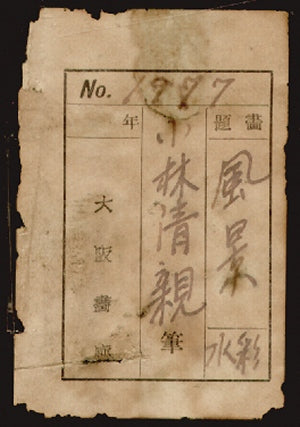 No. 1997
畫題
風景
水彩
小林清親
筆
年
大阪畫廊